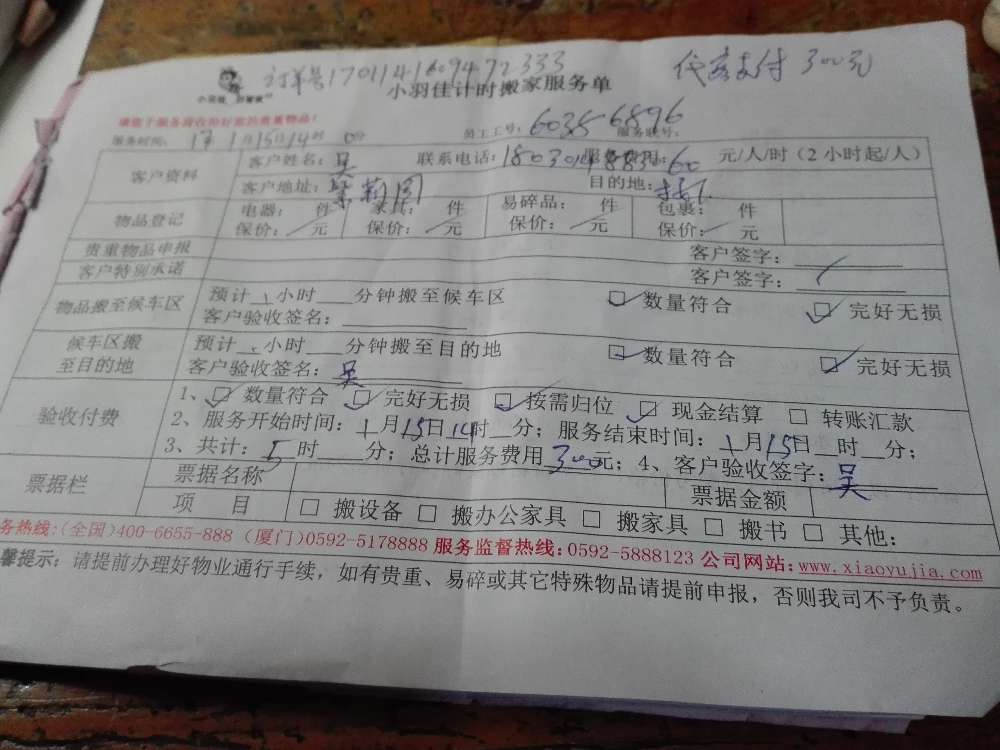 订单号170114160947​2333 代客支付300元
小羽佳计时搬家服务单
请您于服务前收拾好您的贵重物品!
服务时间: 17 1月15日14时 0分 员工工号:60356896 服务联号:
客户资料 客户姓名:吴 联系电话: 60 元/人/时(2小时起/人)
客户地址:茉莉园 目的地:
物品登记 电器: 件 家具: 件 易碎品: 件 包裹: 件
保价: 元 保价: 元 保价: 元 保价: 元
贵重物品申报 客户签字:
客户特别承诺 客户签字:
物品搬至候车区 预计 小时 分钟搬至候车区 ☑数量符合 ☑完好无损
客户验收签名:
候车区搬至目的地 预计 小时 分钟搬至目的地 ☑数量符合 ☑完好无损
客户验收签名:吴
验收付费 1、☑数量符合 ☑完好无损 ☑按需归位 ☑现金结算 □转账汇款
2、服务开始时间:1月15日14时 分;服务结束时间:1月15日 时 分;
3、共计:5时 分;总计服务费用300元;4、客户验收签字:吴
票据栏 票据名称 票据金额
项 目 □搬设备 □搬办公家具 □搬家具 □搬书 □其他:
务热线:(全国)400-6655-888 (厦门)0592-5178888 服务监督热线:0592-5888123 公司网站:www.xiaoyujia.com
馨提示:请提前办理好物业通行手续,如有贵重、易碎或其它特殊物品请提前申报,否则我司不予负责。